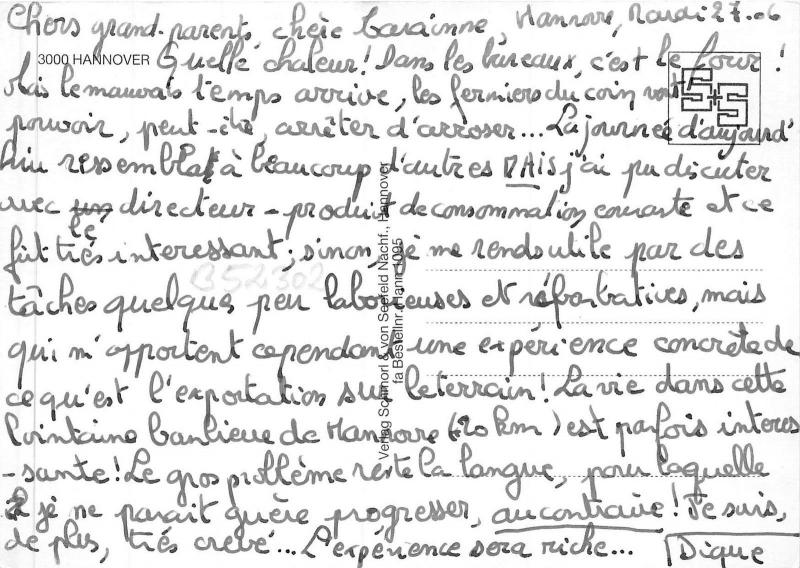 Chers grand-parents, chère Hannovre, Mardi 27.06
3000 HANNOVER Quelle chaleur! Dans les bureaux, c'est le four!
Mais le mauvais temps arrive, les fermiers du coin vont
pouvoir, peut-être, arrêter d'arroser... La journée d'aujourd'
hui ressembla à beaucoup d'autres MAIS j'ai pu discuter
avec le directeur - produit de consommation courante et ce
fût très interessant; sinon, je me rends utile par des
B52302
tâches quelque peu laborieuses et réfarbatives, mais
qui m'apportent cependant une expérience concrète de
ce qu'est l'exportation sur le terrain! La vie dans cette
lointaine banlieue de Hannovre (20 km) est parfois interes
-sante! Le gros problème reste la langue, pour laquelle
je ne parait guère progresser, au contraire! Je suis,
de plus, très crevé... L'expérience sera riche...
Verlag Schmorl & von Seefeld Nachf., Hannover
fa Bestellnr. Hann 1095